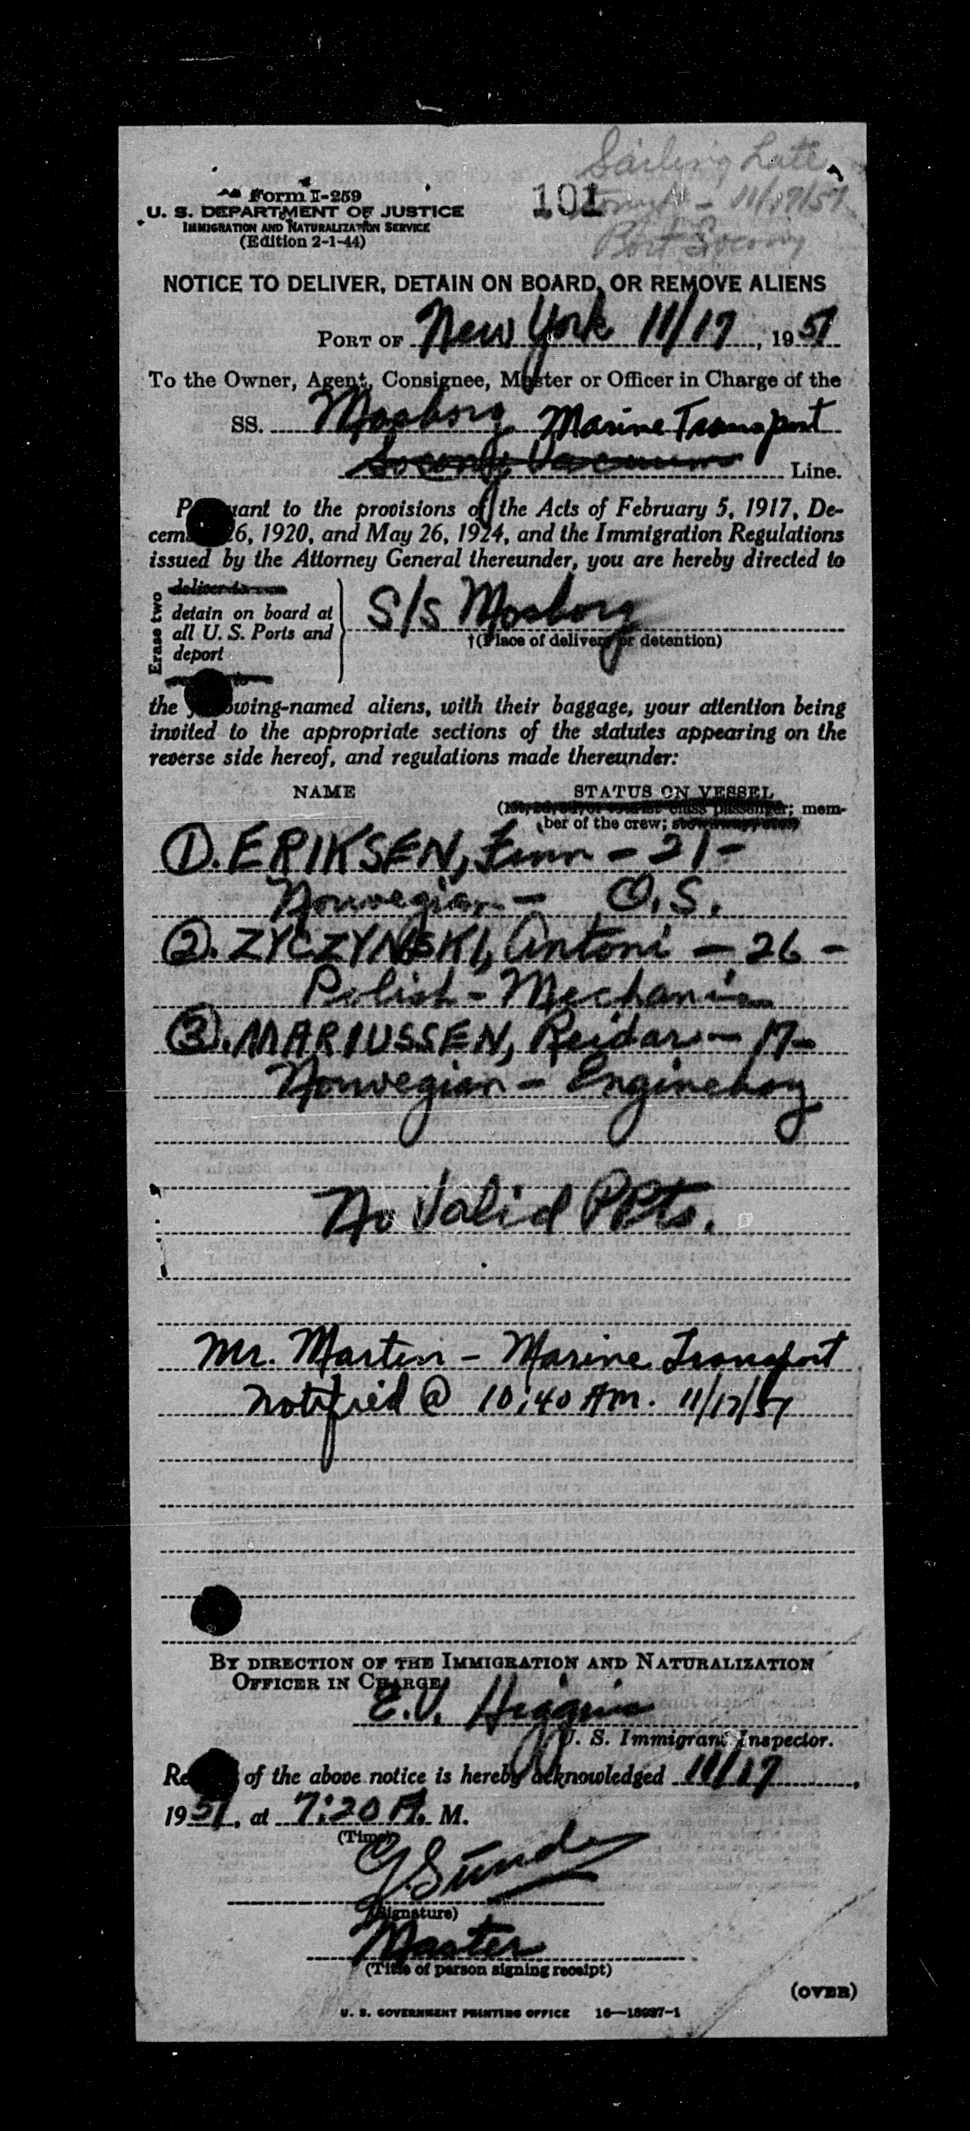 Sailing Late
101
11/17/51
Port Socony
Form I-259
U. S. DEPARTMENT OF JUSTICE
IMMIGRATION AND NATURALIZATION SERVICE
(Edition 2-1-44)
NOTICE TO DELIVER, DETAIN ON BOARD, OR REMOVE ALIENS
PORT OF New York 11/17, 1951
To the Owner, Agent, Consignee, Master or Officer in Charge of the
SS. Mosborg Marine Transport
Socony Vacuum Line.
Pursuant to the provisions of the Acts of February 5, 1917, De-
cember 26, 1920, and May 26, 1924, and the Immigration Regulations
issued by the Attorney General thereunder, you are hereby directed to
Erase two
deliver to
detain on board at
all U. S. Ports and
deport
S/S Mosborg
†(Place of delivery or detention)
the following-named aliens, with their baggage, your attention being
invited to the appropriate sections of the statutes appearing on the
reverse side hereof, and regulations made thereunder:
NAME STATUS ON VESSEL
class passenger; mem-
ber of the crew;
①. ERIKSEN, Finn - 21 -
Norwegian - O.S.
②. ZYCZYNSKI, Antoni - 26 -
Polish - Mechanic
③. MARIUSSEN, Reidar - 17 -
Norwegian - Engineboy
No Valid PPts.
Mr. Martin - Marine Transport
notified @ 10:40 AM. 11/17/51
BY DIRECTION OF THE IMMIGRATION AND NATURALIZATION
OFFICER IN CHARGE
E.V. Higgins
U. S. Immigrant Inspector.
Receipt of the above notice is hereby acknowledged 11/17,
1951, at 7:20 A. M.
(Time)
G. Sunde
(Signature)
Master
(Title of person signing receipt)
(OVER)
U. S. GOVERNMENT PRINTING OFFICE 16—18937-1